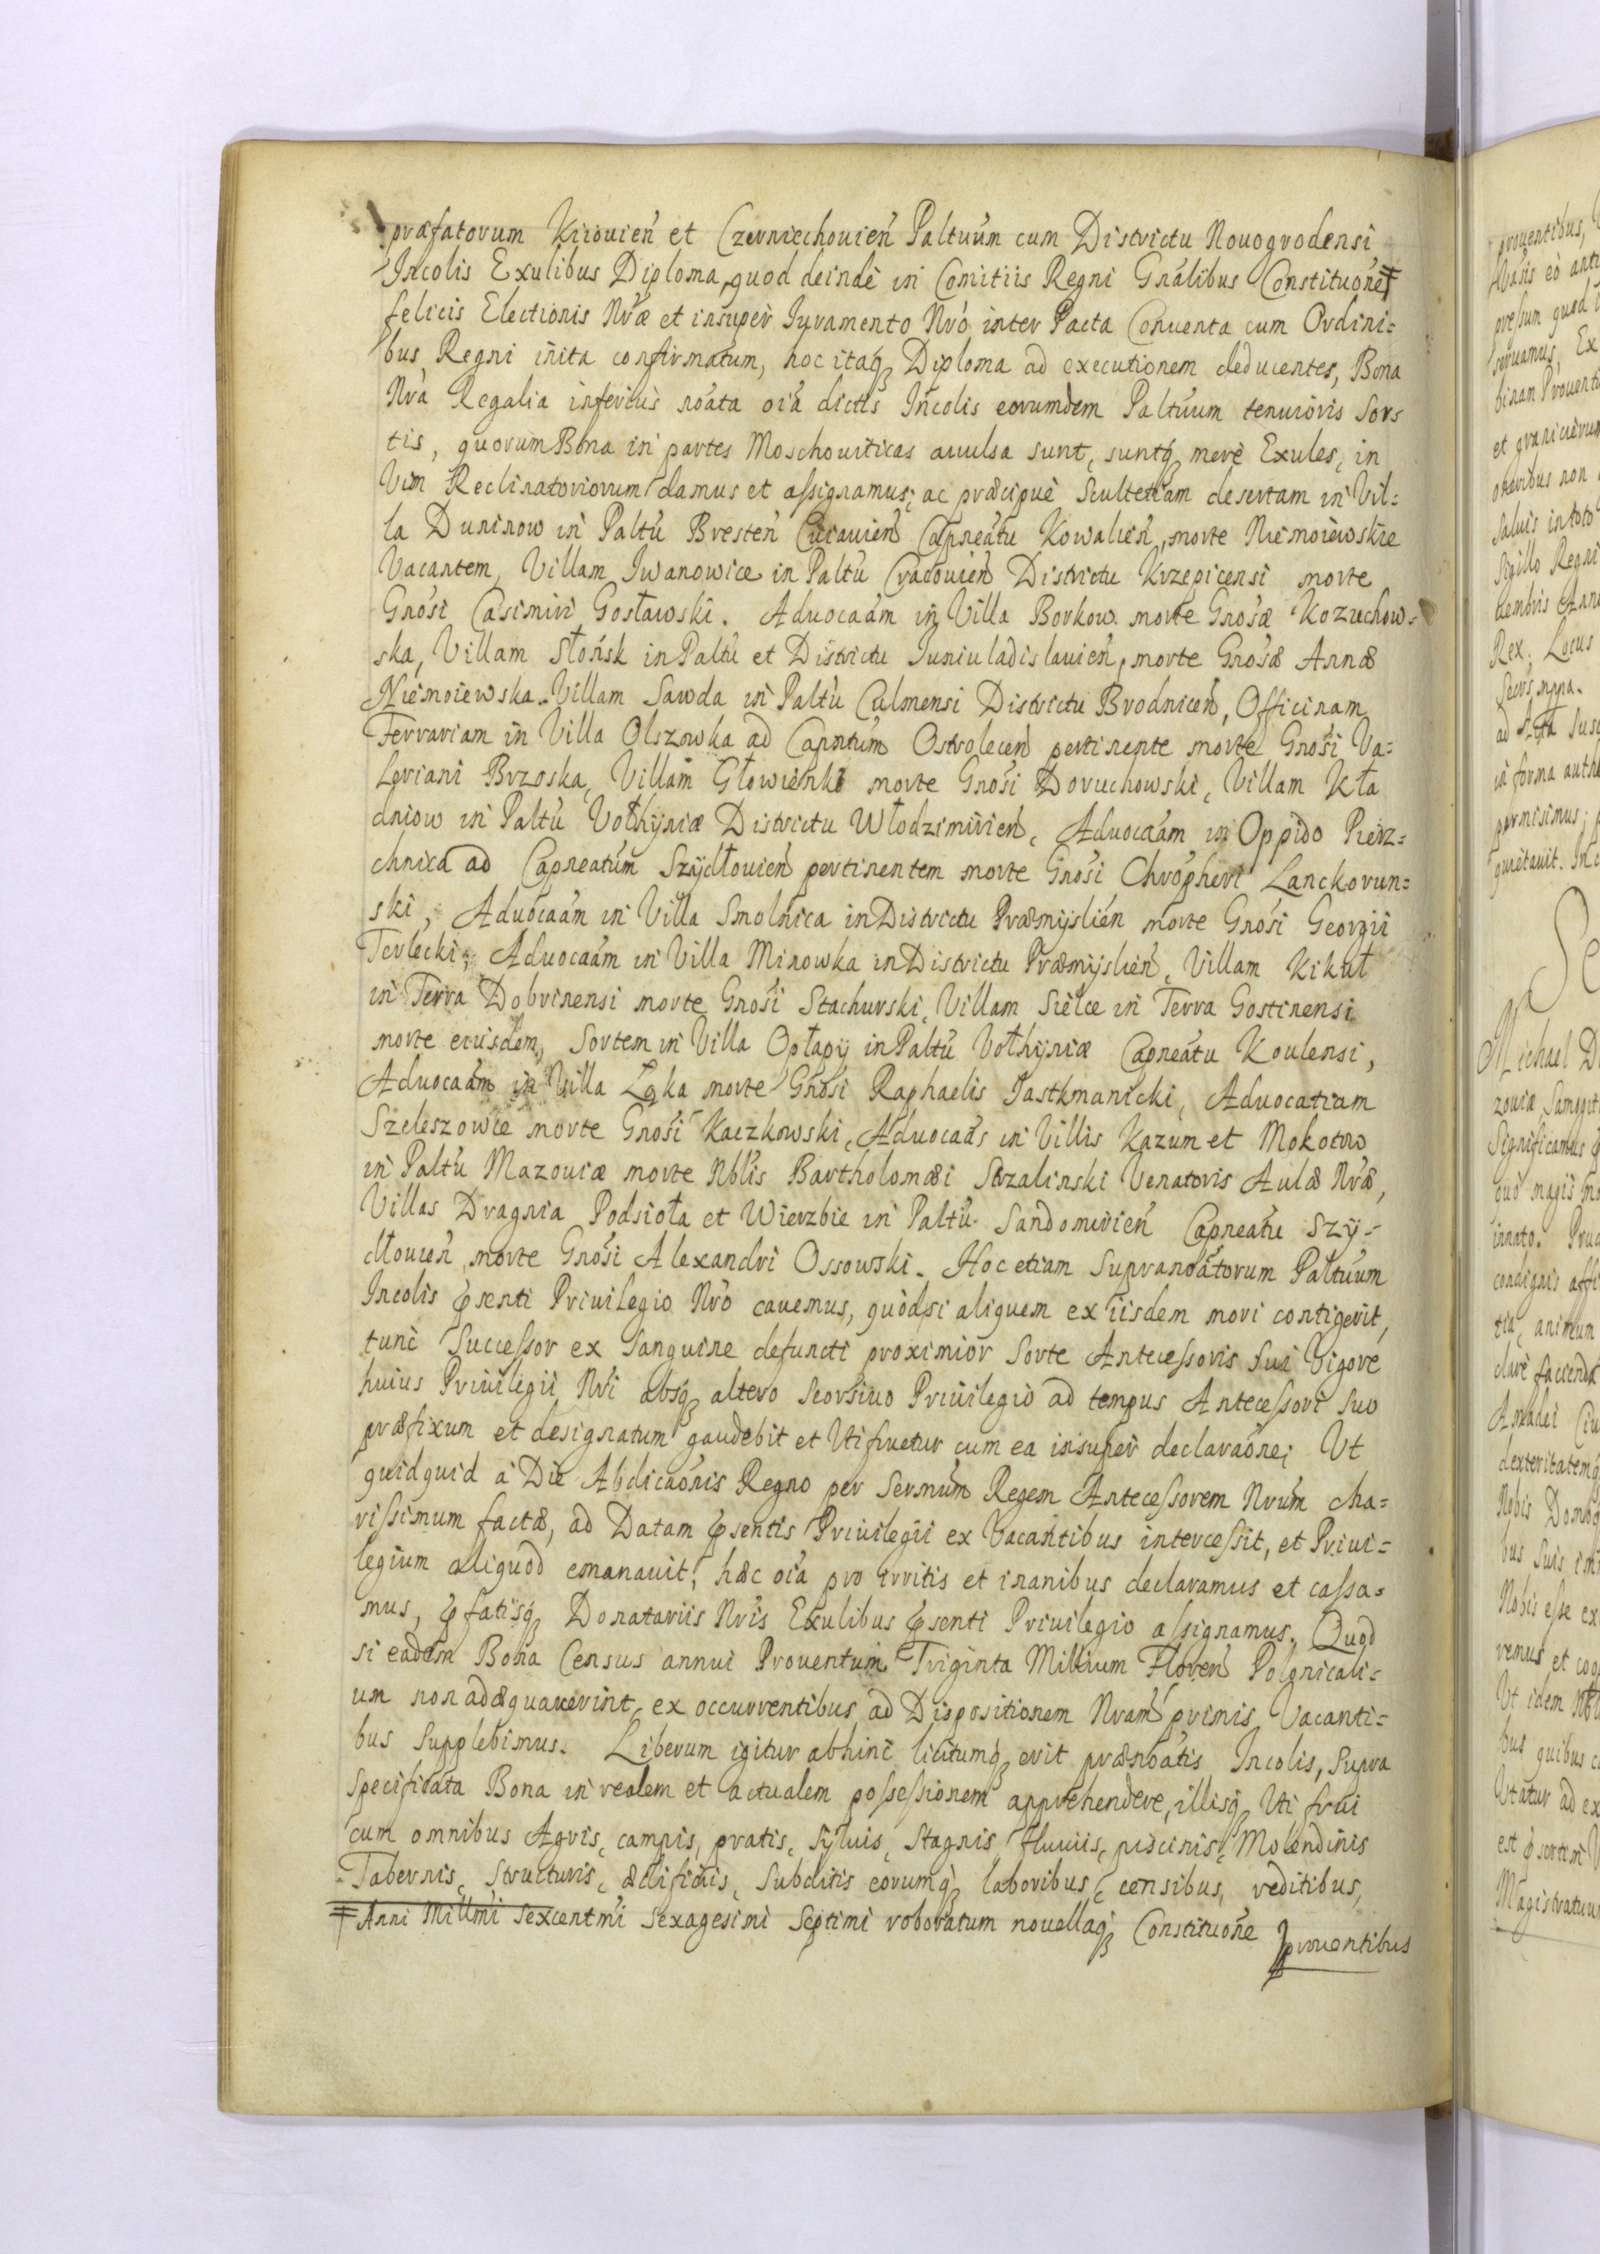 præfatorum Kiiovień et Czerniechovień Paltuúm cum Districtu Novogrodensi
Incolis Exulibus Diploma, quod deindè in Comitiis Regni Gnálibus Constituóne ‡
felicis Electionis Nræ et insupèr Iuramento Nró inter Pacta Conventa cum Ordini:
bus Regni inita confirmatum, hoc itaq́ꝫ Diploma ad executionem deducentes, Bona
Nrá Regalia inferiùs noáta oiá dictis Incolis eorumdem Paltuum tenuioris Sor:
tis, quorum Bona in partes Moschoviticas avulsa sunt, suntq́ꝫ merè Exules, in
Vim Reclinatoriorum damus et aſsignamus; ac præcipuè Scultetiam desertam in Vil:
la Duninow in Paltú Bresteń Cuiavień Capneátu Kowalień, morte Niemoiewskie
Vacantem, Villam Iwanowice in Paltú Cracovień Districtu Krzepicensi morte
Gnósi Casimiri Gosławski. Advocaám in Villa Borkow morte Gnósæ Kozuchow:
ska, Villam Słońsk in Paltú et Districtu Iuniuladislavień, morte Gnósæ Annæ
Niemoiewska. Villam Sawda in Paltú Culmensi Districtu Brodniceń, Officinam
Ferrariam in Villa Olszowka ad Capntúm Ostroleceń pertinente morte Gnósi Va:
leriani Brzoska, Villam Głowienki morte Gnósi Doruchowski, Villam Kła
dniow in Paltú Volhyniæ Districtu Włodzimirień, Advocaám in Oppido Pierz:
chnica ad Capneatúm Szydłovień pertinentem morte Gnósi Chróphori Lanckorun:
ski, Advocaám in Villa Smolnica in Districtu Præmyslień morte Gnósi Georgii
Terlecki; Advocaám in Villa Minowka in Districtu Præmyslień, Villam Kikuł
in Terra Dobrinensi morte Gnósi Stachurski, Villam Sielce in Terra Gostinensi
morte eiusdem, Sortem in Villa Opłapy in Paltú Volhyniæ Capneátu Koulensi,
Advocaám in Villa Łąka morte Gnósi Raphaelis Iastkmanicki, Advocatiam
Szeleszowie morte Gnósi Kaczkowski, Advocaás in Villis Kazum et Mokotow
in Paltú Mazoviæ morte Nblis Bartholomæi Strzalinski Venatoris Aulæ Nræ,
Villas Dragnia Podsioła et Wierzbie in Paltú Sandomirień Capneátu Szy:
dłovień morte Gnósi Alexandri Ossowski. Hoc etiam Supranoátorum Paltuúm
Incolis ꝓsenti Privilegio Nró cavemus, quòdsi aliquem ex iisdem mori contigerit,
tunc Succeſsor ex Sanguine defuncti proximior Sorte Anteceſsoris Sui Vigore
huius Privilegii Nri absq́ꝫ altero Seorsivo Privilegio ad tempus Anteceſsori Suo
præfixum et designatum gaudebit et Utifruetur cum ea insupèr declaraóne; Ut
quidquid à Die Abdicaónis Regno per Sermúm Regem Anteceſsorem Nrúm cha:
riſsimum factæ, ad Datam ꝓsentis Privilegii ex Vacantibus interceſsit, et Privi:
legium aliquod emanavit, hæc oiá pro irritis et inanibus declaramus et caſsa:
mus, ꝓfatisq́ꝫ Donatariis Nris Exulibus ꝓsenti Privilegio aſsignamus. Quod
si eadem Bona Census annui Proventum Triginta Millium Floreń Polonicali:
um non adæquaverint, ex occurrentibus ad Dispositionem Nram primis Vacanti:
bus Supplebimus. Liberum igitur abhinc licitumq́ꝫ erit prænoátis Incolis, Supra
Specificata Bona in realem et actualem poſseſsionem apprehendere, illisq́ꝫ Uti frui
cum omnibus Agris, campis, pratis, Sylvis, Stagnis, fluviis, piscinis, Molendinis
Tabernis, Structuris, ædificiis, Subditis eorumq́ꝫ laboribus, censibus, reditibus,
‡ Anni Millmi Sexcentmi Sexagesimi Septimi roboratum novellaq́ꝫ Constituóne
proventibus